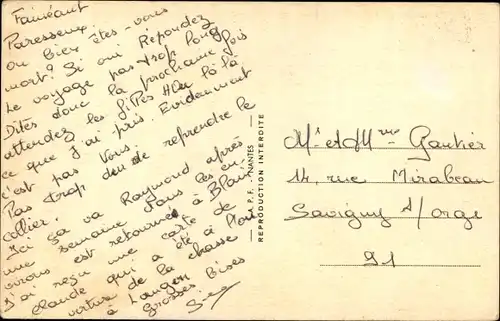 Fainéant
Paresseux.
ou bien êtes-vous
mort? Si oui Répondez
Le voyage pas trop long
Dites donc la prochaine fois
attendez les là là
ce que J'ai pris. Evidemment
c'est pas Vous.
Pas trop dur de reprendre le
collier.
Ici ça va Raymond après
une semaine dans les en-
virons est retourné à Blain
J'ai reçu une carte de
Claude qui a été à
de la chasse
à
Grosses Bises
NANTES
REPRODUCTION INTERDITE
Mr et Mme Gautier
14, rue Mirabeau
Savigny s/orge
91